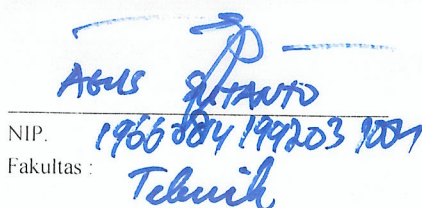 AGUS SUTANTO
NIP. 19660814 199203 1001
Fakultas : Teknik